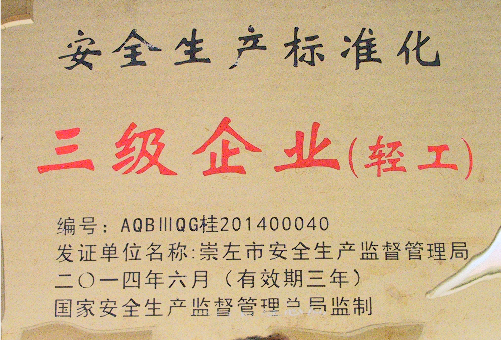 安全生产标准化
三级企业(轻工)
编号: AQBⅢQG桂201400040
发证单位名称:崇左市安全生产监督管理局
二〇一四年六月(有效期三年)
国家安全生产监督管理总局监制